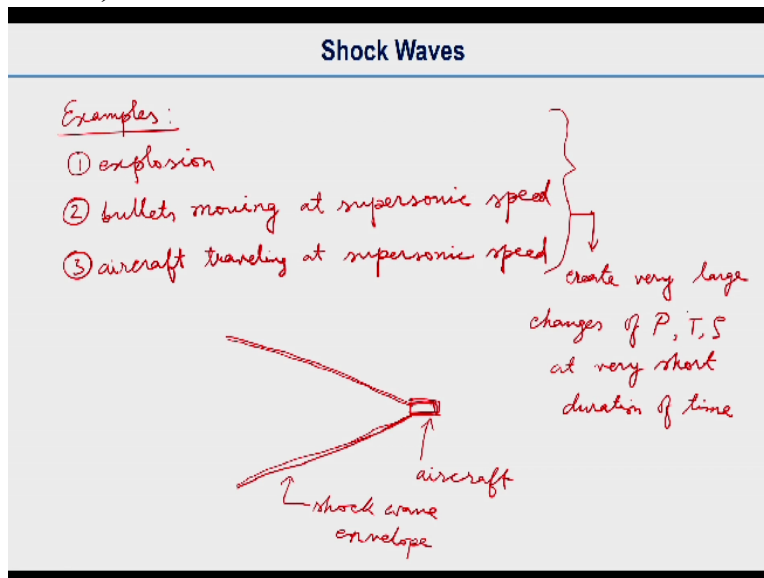 Shock Waves
Examples:
① explosion
② bullets moving at supersonic speed
③ aircraft traveling at supersonic speed
create very large
changes of P, T, ρ
at very short
duration of time
aircraft
shock wave
envelope